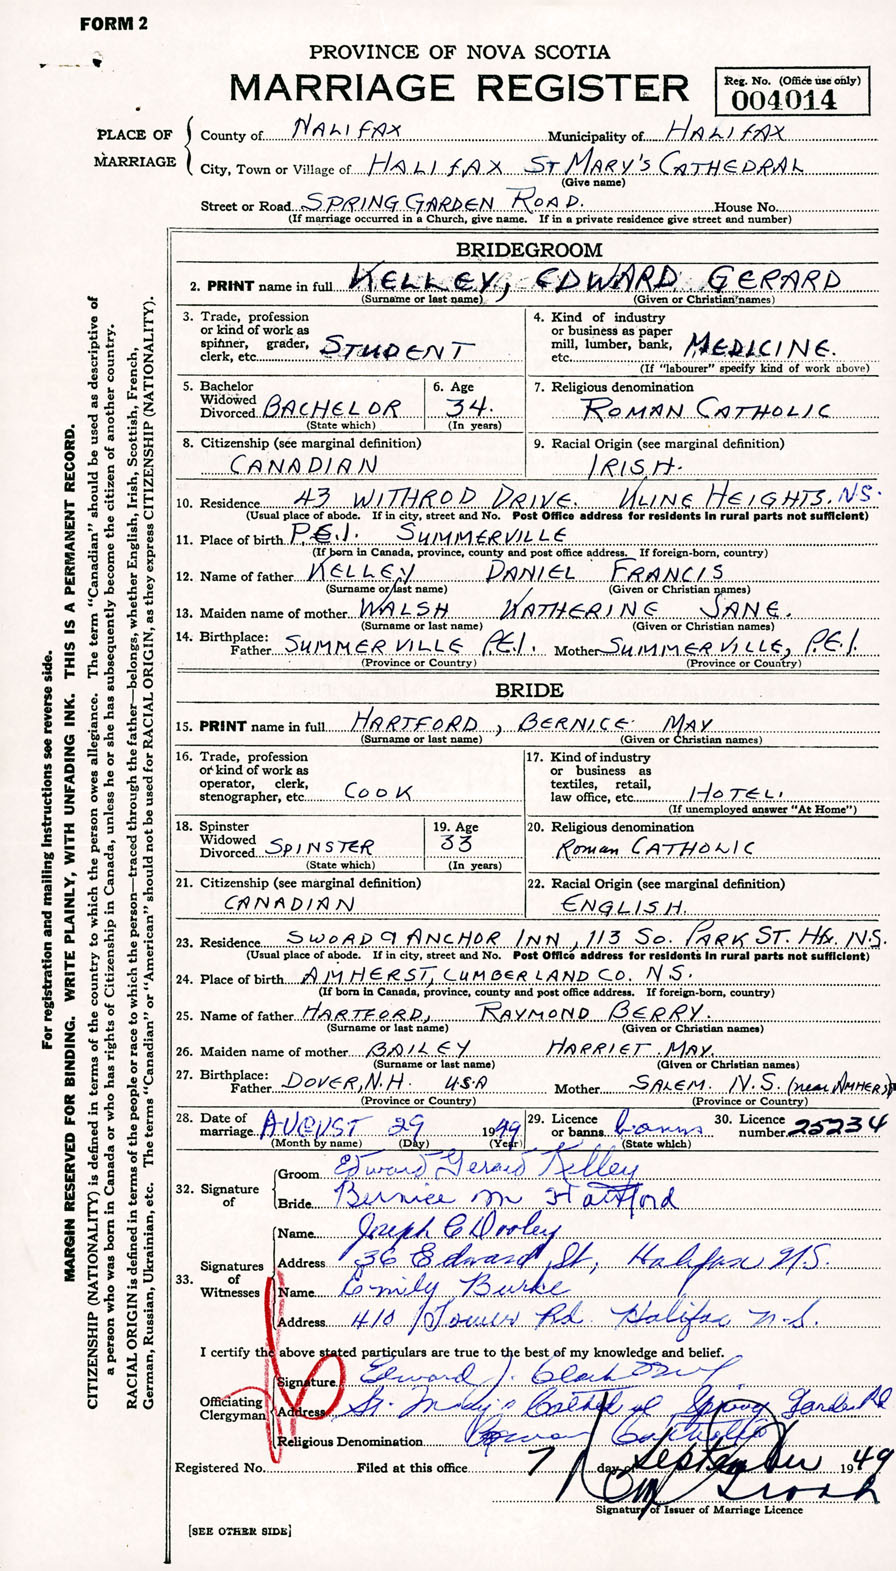 FORM 2
PROVINCE OF NOVA SCOTIA
MARRIAGE REGISTER
Reg. No. (Office use only)
004014
PLACE OF MARRIAGE
County of HALIFAX Municipality of HALIFAX
City, Town or Village of HALIFAX ST MARY'S CATHEDRAL
(Give name)
Street or Road SPRING GARDEN ROAD. House No.
(If marriage occurred in a Church, give name. If in a private residence give street and number)
BRIDEGROOM
2. PRINT name in full KELLEY, EDWARD GERARD
(Surname or last name) (Given or Christian names)
3. Trade, profession or kind of work as spinner, grader, clerk, etc. STUDENT
4. Kind of industry or business as paper mill, lumber, bank, etc. MEDICINE.
(If "labourer" specify kind of work above)
5. Bachelor Widowed Divorced BACHELOR
(State which)
6. Age 34.
(In years)
7. Religious denomination
ROMAN CATHOLIC
8. Citizenship (see marginal definition)
CANADIAN
9. Racial Origin (see marginal definition)
IRISH.
10. Residence 43 WITHROD DRIVE. KLINE HEIGHTS. N.S.
(Usual place of abode. If in city, street and No. Post Office address for residents in rural parts not sufficient)
11. Place of birth P.E.I. SUMMERVILLE
(If born in Canada, province, county and post office address. If foreign-born, country)
12. Name of father KELLEY DANIEL FRANCIS
(Surname or last name) (Given or Christian names)
13. Maiden name of mother WALSH KATHERINE JANE.
(Surname or last name) (Given or Christian names)
14. Birthplace:
Father SUMMERVILLE P.E.I. Mother SUMMERVILLE, P.E.I.
(Province or Country) (Province or Country)
BRIDE
15. PRINT name in full HARTFORD, BERNICE MAY
(Surname or last name) (Given or Christian names)
16. Trade, profession or kind of work as operator, clerk, stenographer, etc. COOK
17. Kind of industry or business as textiles, retail, law office, etc. HOTEL.
(If unemployed answer "At Home")
18. Spinster Widowed Divorced SPINSTER
(State which)
19. Age 33
(In years)
20. Religious denomination
Roman CATHOLIC
21. Citizenship (see marginal definition)
CANADIAN
22. Racial Origin (see marginal definition)
ENGLISH.
23. Residence SWORD & ANCHOR INN, 113 So. PARK ST. Hfx. N.S.
(Usual place of abode. If in city, street and No. Post Office address for residents in rural parts not sufficient)
24. Place of birth AMHERST, CUMBERLAND CO. N.S.
(If born in Canada, province, county and post office address. If foreign-born, country)
25. Name of father HARTFORD, RAYMOND BERRY.
(Surname or last name) (Given or Christian names)
26. Maiden name of mother BAILEY HARRIET MAY.
(Surname or last name) (Given or Christian names)
27. Birthplace:
Father DOVER, N.H. USA Mother SALEM. N.S. (near AMHERST)
(Province or Country) (Province or Country)
28. Date of marriage AUGUST 29 1949
(Month by name) (Day) (Year)
29. Licence or banns banns
(State which)
30. Licence number 25234
32. Signature of
Groom Edward Gerard Kelley
Bride Bernice M Hartford
33. Signatures of Witnesses
Name Joseph C Dooley
Address 36 Edward St, Halifax N.S.
Name Emily Burke
Address 410 Tower Rd. Halifax N.S.
I certify the above stated particulars are true to the best of my knowledge and belief.
Officiating Clergyman
Signature Edward J.
Address St. Mary's Cathedral Spring Garden Rd
Religious Denomination Roman Catholic
Registered No. Filed at this office 7 day of September 1949
Signature of Issuer of Marriage Licence
[SEE OTHER SIDE]
For registration and mailing instructions see reverse side.
MARGIN RESERVED FOR BINDING. WRITE PLAINLY, WITH UNFADING INK. THIS IS A PERMANENT RECORD.
CITIZENSHIP (NATIONALITY) is defined in terms of the country to which the person owes allegiance. The term "Canadian" should be used as descriptive of
a person who was born in Canada or who has rights of Citizenship in Canada, unless he or she has subsequently become the citizen of another country.
RACIAL ORIGIN is defined in terms of the people or race to which the person—traced through the father—belongs, whether English, Irish, Scottish, French,
German, Russian, Ukrainian, etc. The terms "Canadian" or "American" should not be used for RACIAL ORIGIN, as they express CITIZENSHIP (NATIONALITY).